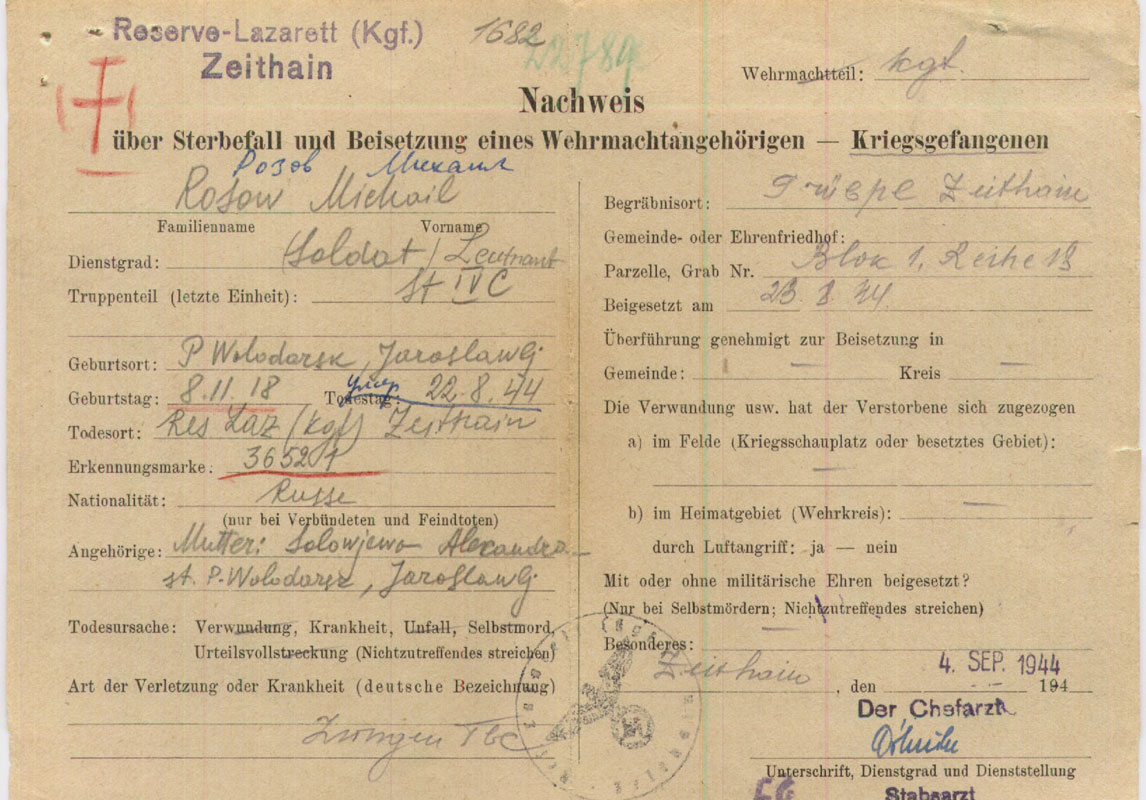 Reserve-Lazarett (Kgf.)
Zeithain
1682
22789
Wehrmachtteil: Kgf.
Nachweis
über Sterbefall und Beisetzung eines Wehrmachtangehörigen — Kriegsgefangenen
Розов Михаил
Rosow Michail
Familienname Vorname
Dienstgrad: (Soldat) Leutnant
Truppenteil (letzte Einheit): St IV C
Geburtsort: P Wolodarsk, Jaroslaw G.
Geburtstag: 8.11.18 Todestag: умер 22.8.44
Todesort: Res Laz (Kgf) Zeithain
Erkennungsmarke: 36529
Nationalität: Russe
(nur bei Verbündeten und Feindtoten)
Angehörige: Mutter: Solowjewa Alexandra
st. P. Wolodarsk, Jaroslaw G.
Todesursache: Verwundung, Krankheit, Unfall, Selbstmord,
Urteilsvollstreckung (Nichtzutreffendes streichen)
Art der Verletzung oder Krankheit (deutsche Bezeichnung)
Tbc
Begräbnisort: Zeithain
Gemeinde- oder Ehrenfriedhof:
Parzelle, Grab Nr. Blok 1, Reihe 18
Beigesetzt am 23.8.44
Überführung genehmigt zur Beisetzung in
Gemeinde: — Kreis —
Die Verwundung usw. hat der Verstorbene sich zugezogen
a) im Felde (Kriegsschauplatz oder besetztes Gebiet):
—
b) im Heimatgebiet (Wehrkreis): —
durch Luftangriff: ja — nein
Mit oder ohne militärische Ehren beigesetzt?
(Nur bei Selbstmördern; Nichtzutreffendes streichen)
—
Besonderes:
Zeithain, den 4. SEP. 1944 194
Der Chefarzt
Unterschrift, Dienstgrad und Dienststellung
Stabsarzt